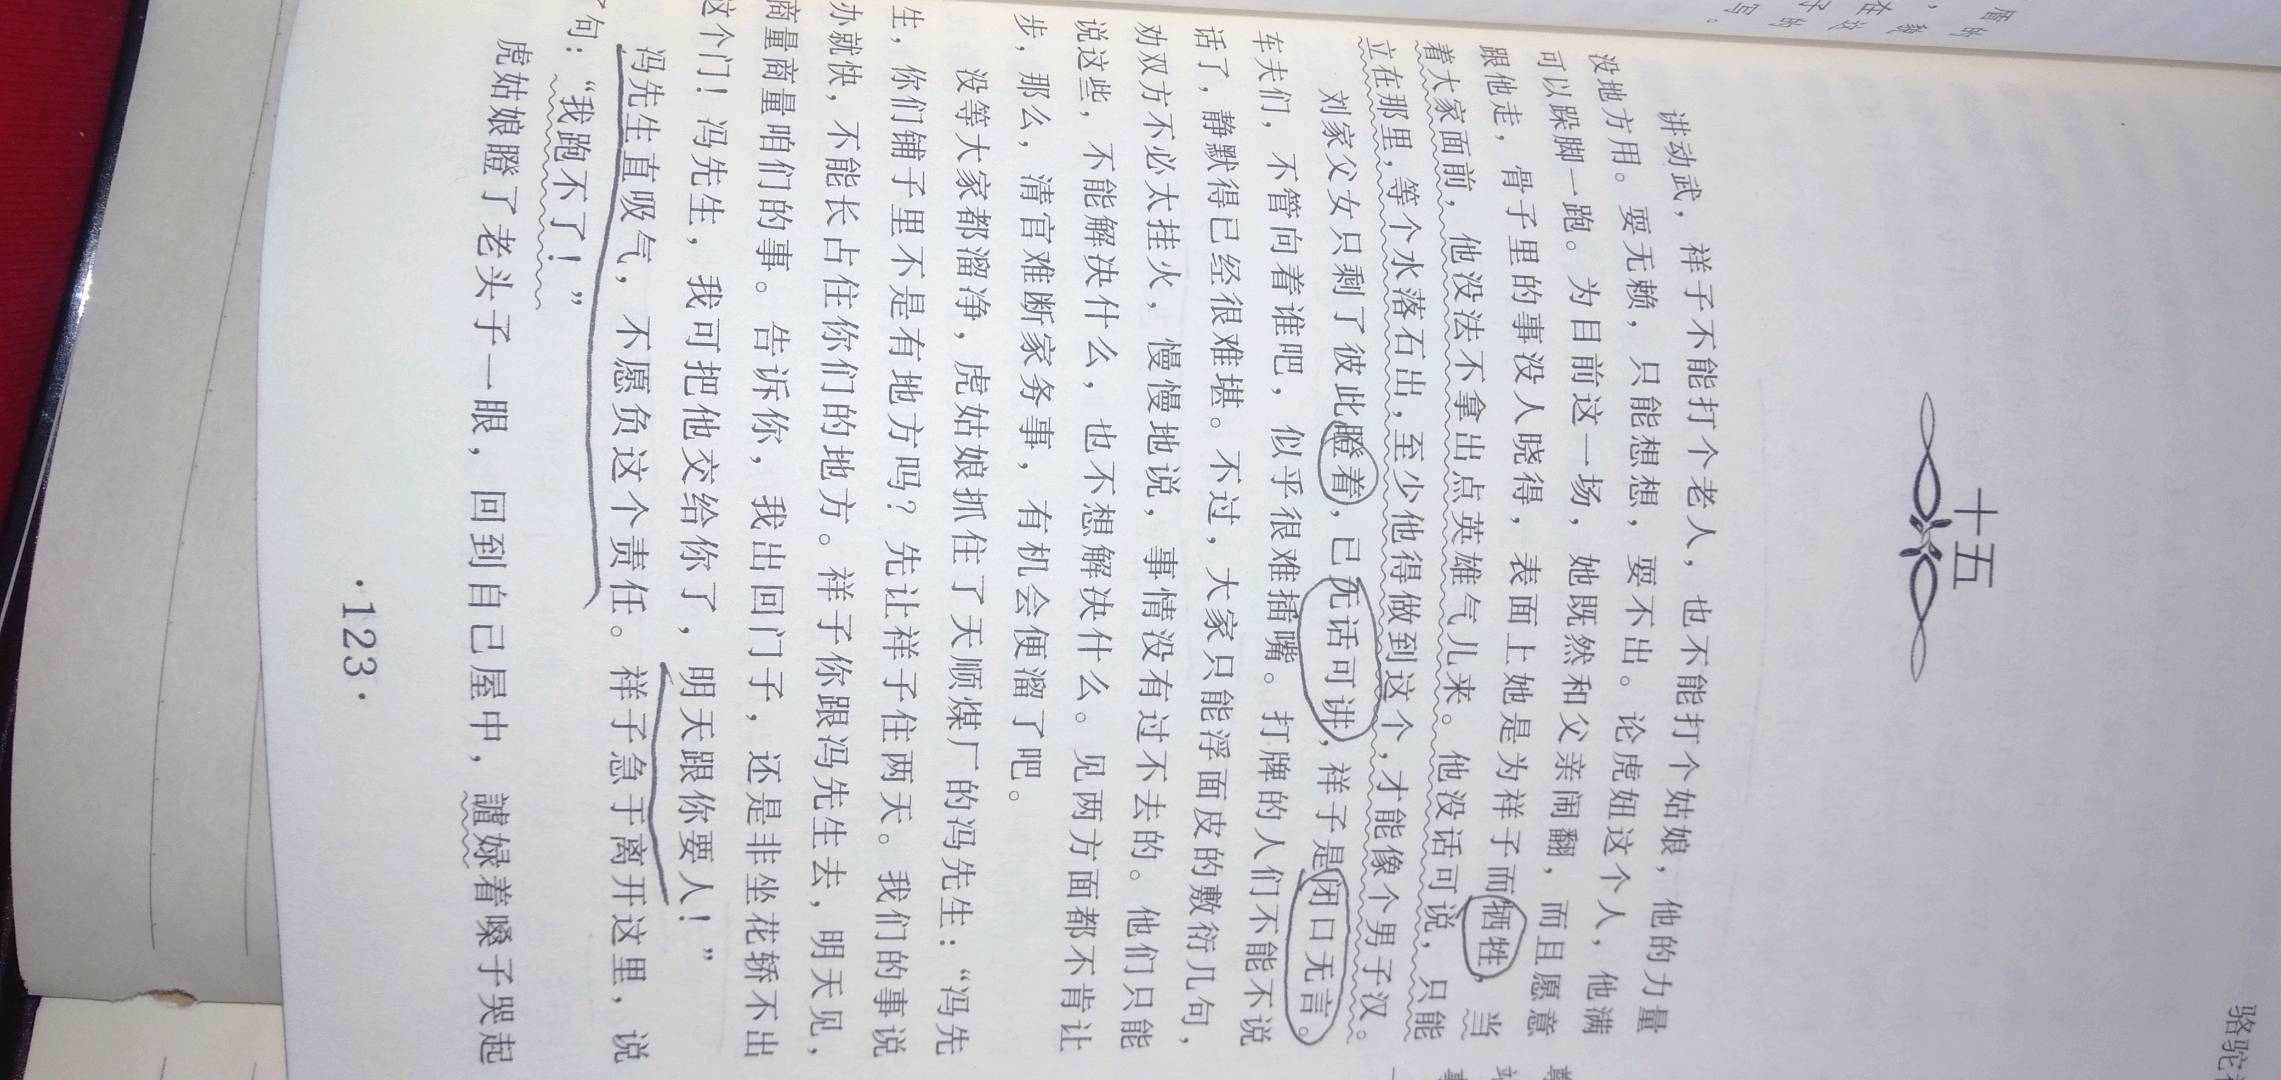 骆驼
十五
讲动武，祥子不能打个老人，也不能打个姑娘，他的力量
没地方用。耍无赖，只能想想，耍不出。论虎妞这个人，他满
可以跺脚一跑。为目前这一场，她既然和父亲闹翻，而且愿意
跟他走，骨子里的事没人晓得，表面上她是为祥子而牺牲，当
着大家面前，他没法不拿出点英雄气儿来。他没话可说，只能
立在那里，等个水落石出，至少他得做到这个，才能像个男子汉。
刘家父女只剩了彼此瞪着，已无话可讲，祥子是闭口无言。
车夫们，不管向着谁吧，似乎很难插嘴。打牌的人们不能不说
话了，静默得已经很难堪。不过，大家只能浮面皮的敷衍几句，
劝双方不必太挂火，慢慢地说，事情没有过不去的。他们只能
说这些，不能解决什么，也不想解决什么。见两方面都不肯让
步，那么，清官难断家务事，有机会便溜了吧。
没等大家都溜净，虎姑娘抓住了天顺煤厂的冯先生：“冯先
生，你们铺子里不是有地方吗？先让祥子住两天。我们的事说
办就快，不能长占住你们的地方。祥子你跟冯先生去，明天见，
商量商量咱们的事。告诉你，我出回门子，还是非坐花轿不出
这个门！冯先生，我可把他交给你了，明天跟你要人！”
冯先生直吸气，不愿负这个责任。祥子急于离开这里，说
了句：“我跑不了！”
虎姑娘瞪了老头子一眼，回到自己屋中，譃娽着嗓子哭起
·123·